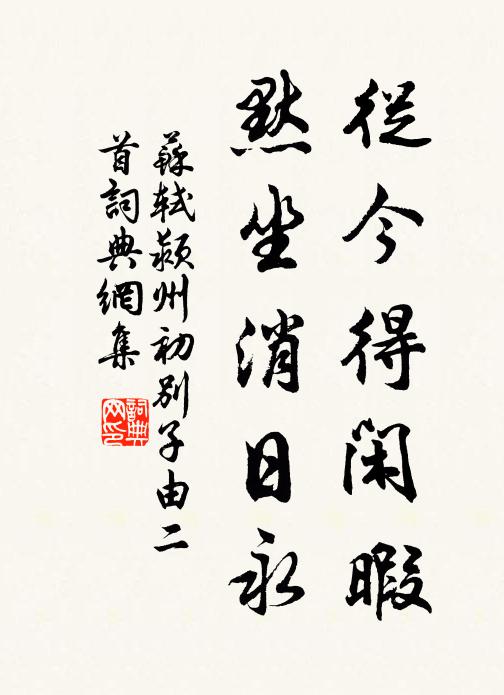 從今得閑暇
默坐消日永
蘇軾潁州初別子由二
首詞典網集
詞典
网印